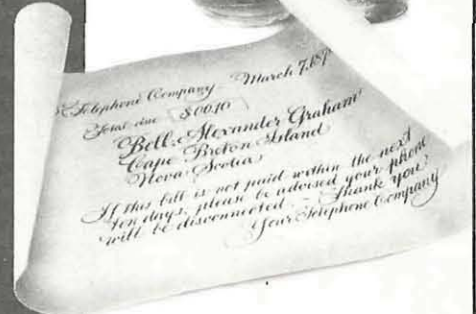 Telephone Company March 7,
Total due $00.10
Bell, Alexander Graham
Cape Breton Island
Nova Scotia
If this bill is not paid within the next
ten days, please be advised your phone
will be disconnected - Thank you,
Your Telephone Company